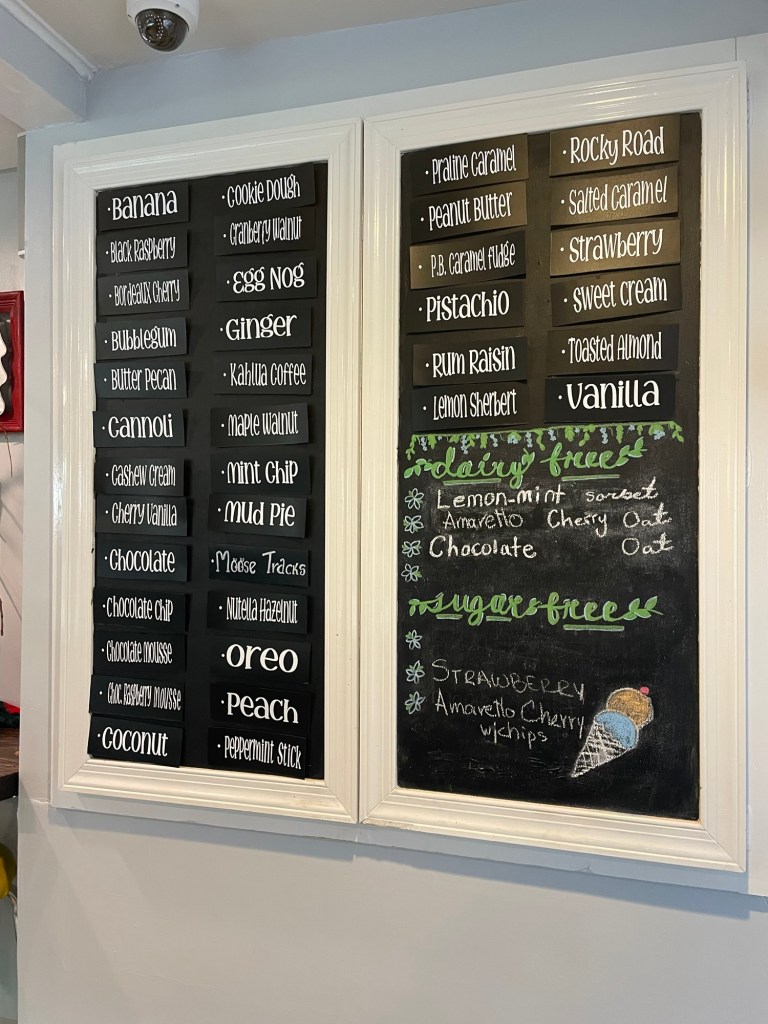 · Banana
· Black Raspberry
· Bordeaux Cherry
· Bubblegum
· Butter Pecan
· Cannoli
· Cashew Cream
· Cherry Vanilla
· Chocolate
· Chocolate Chip
· Chocolate Mousse
· Choc. Raspberry Mousse
· Coconut
· Cookie Dough
· Cranberry Walnut
· Egg Nog
· Ginger
· Kahlua Coffee
· Maple Walnut
· Mint Chip
· Mud Pie
· Moose Tracks
· Nutella Hazelnut
· Oreo
· Peach
· Peppermint Stick
· Praline Caramel
· Peanut Butter
· P.B. Caramel Fudge
· Pistachio
· Rum Raisin
· Lemon Sherbert
· Rocky Road
· Salted Caramel
· Strawberry
· Sweet Cream
· Toasted Almond
· Vanilla
dairy free
Lemon-mint sorbet
Amaretto Cherry Oat
Chocolate Oat
sugar free
STRAWBERRY
Amaretto Cherry
w/chips